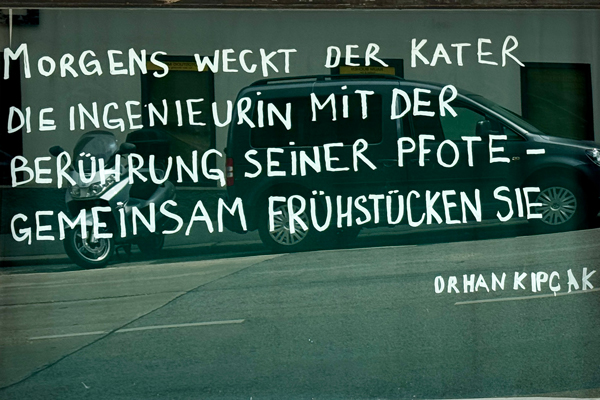 MORGENS WECKT DER KATER
DIE INGENIEURIN MIT DER
BERÜHRUNG SEINER PFOTE –
GEMEINSAM FRÜHSTÜCKEN SIE
ORHAN KIPÇAK